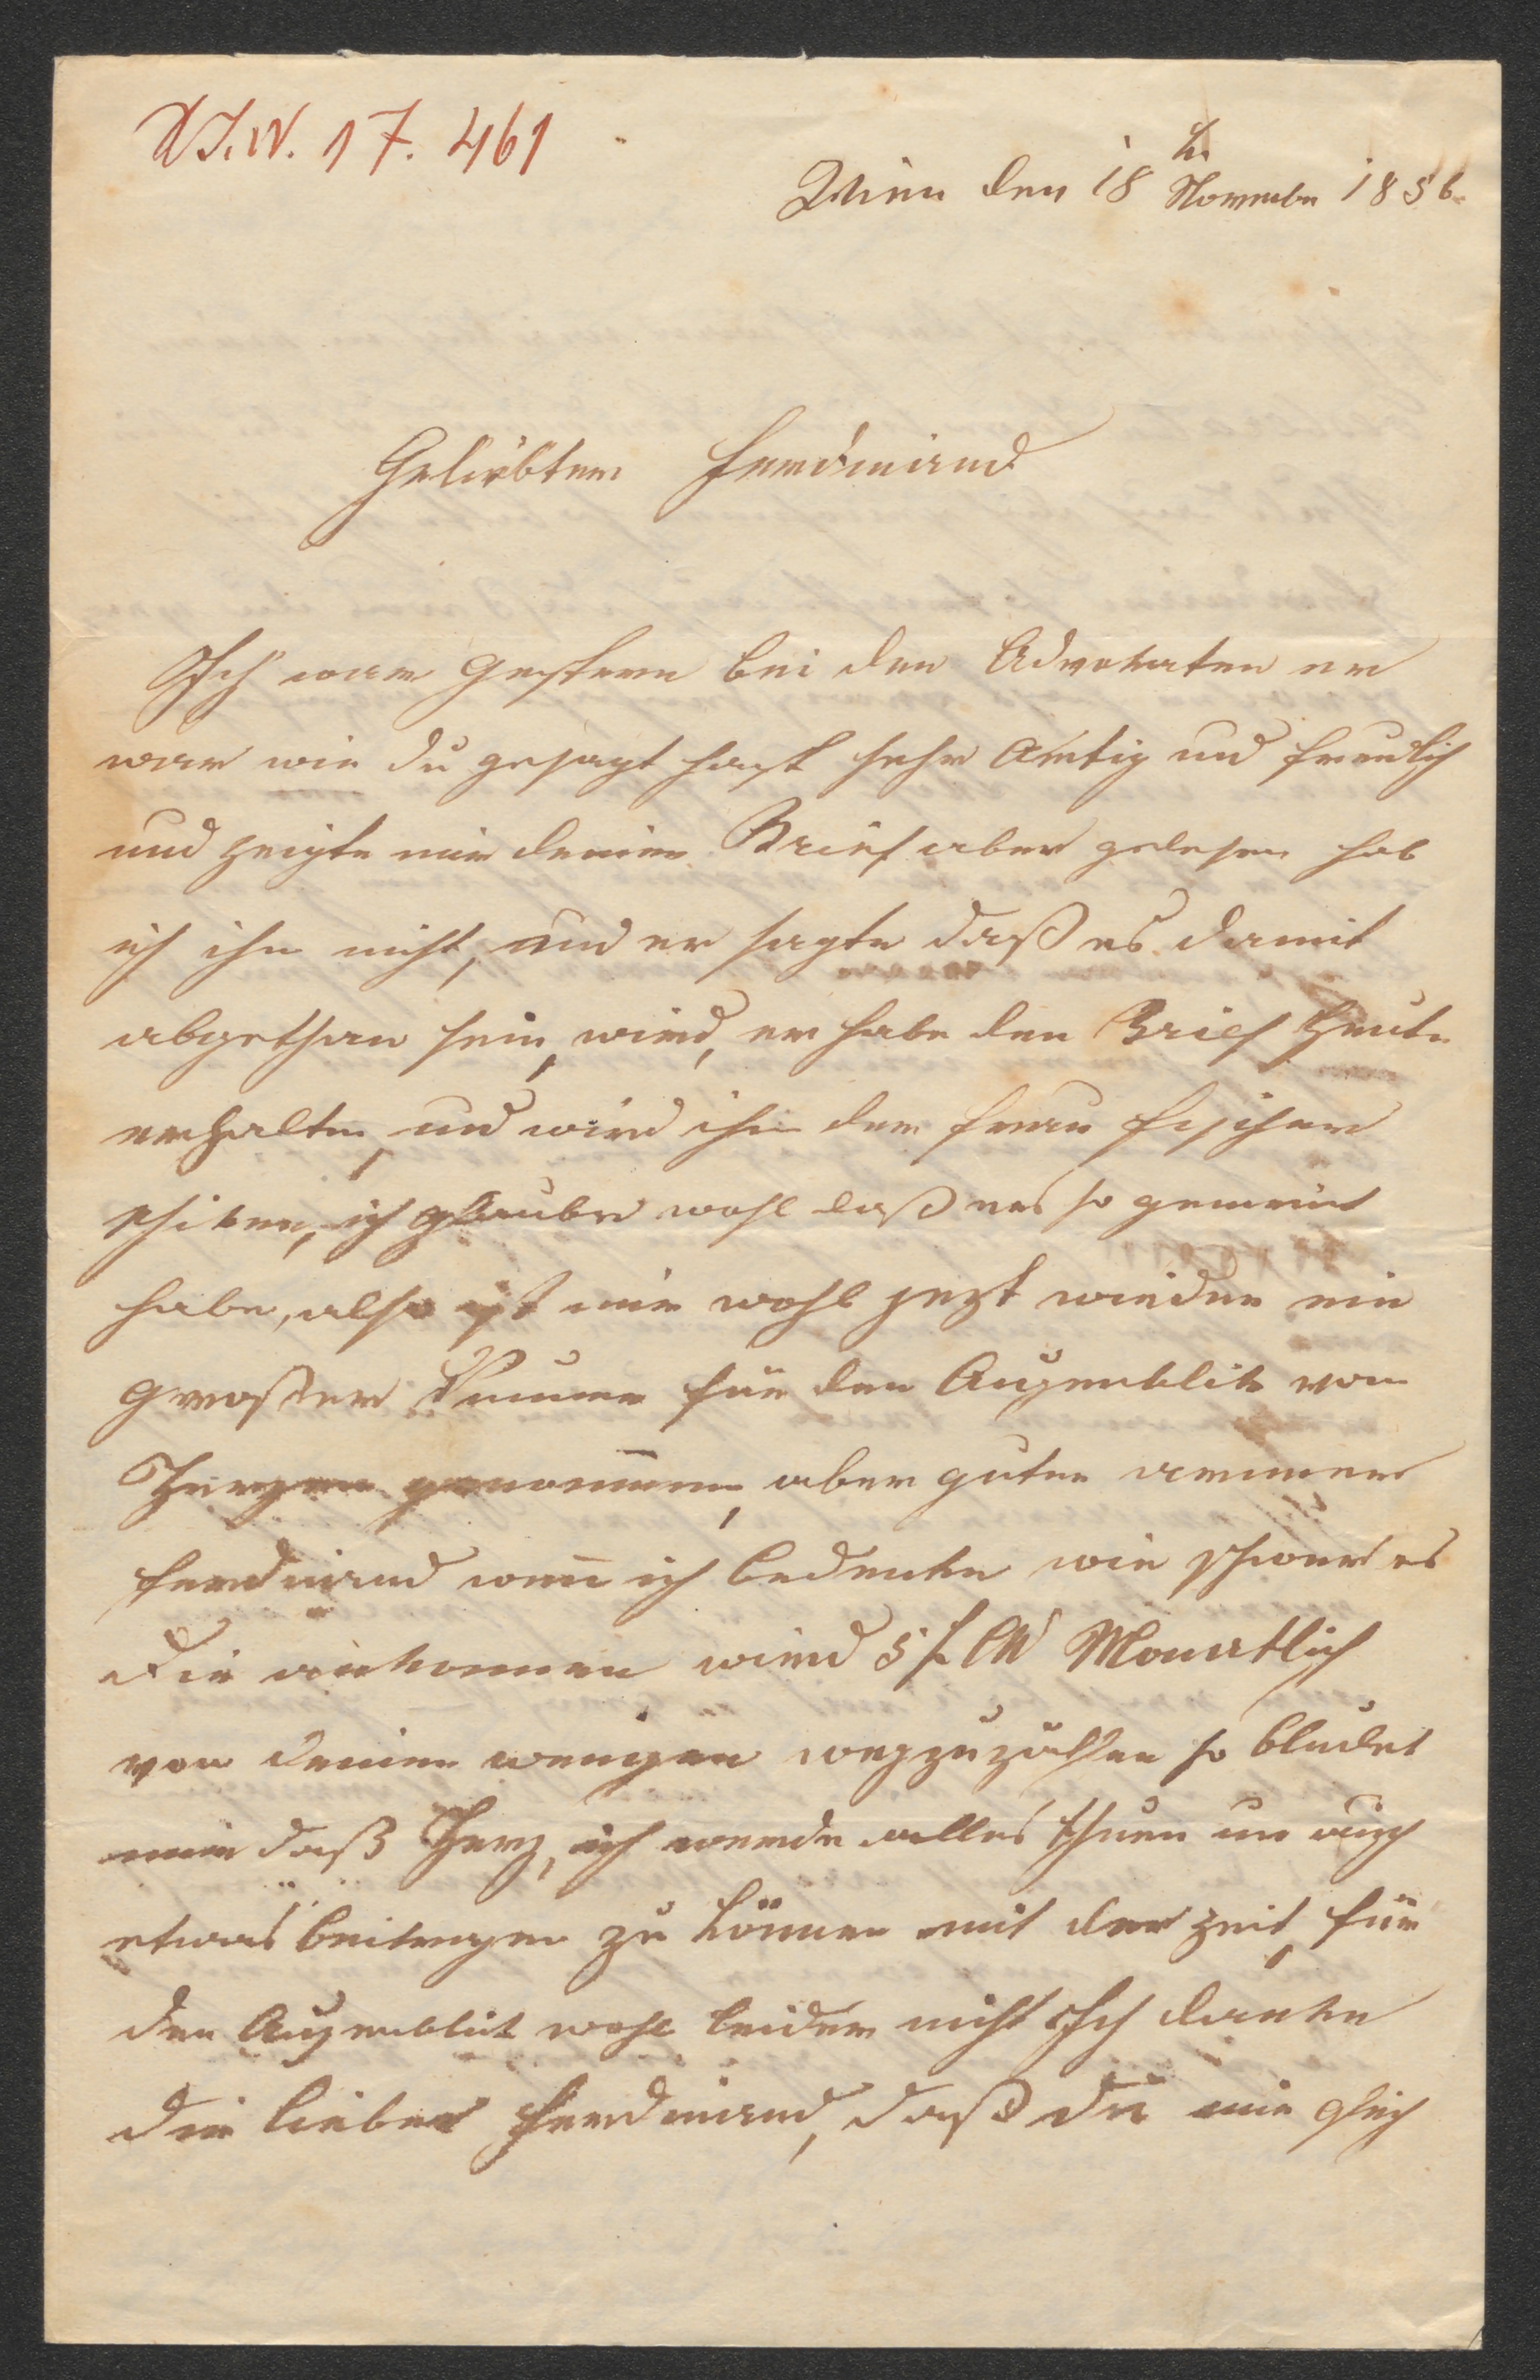 I.N. 17.461
Wien den 18 tn Novembe 1856
Geliebter Ferdinand
Ich war Gestern bei den Advokaten er
war wie du gesagt hast sehr Artig und freundlich
und zeigte mir deinen Brief aber gelesen hab
ich ihn nicht, und er sagte daß es damit
abgethan sein, wird, er habe den Brief Heute
erhalten, und wird ihn der Frau Fischer
schiken, ich glaube wohl daß er es so gemeint
habe, also ist mir wohl jezt wieder ein
großer für den Augenblik von
Herzen genom̅en, aber guter armer
Ferdinand wen̅ ich bedenke wie schwer es
dir ankommen wird 5 f CM Monatlich
von deinen wenigen wegzuzahlen so bludet
mir daß Herz, ich werde alles thuen um auch
etwas beitragen zu können mit der Zeit, für
den Augenblik wohl leider nicht Ich danke
dir lieber Ferdinand, daß du mir gleich